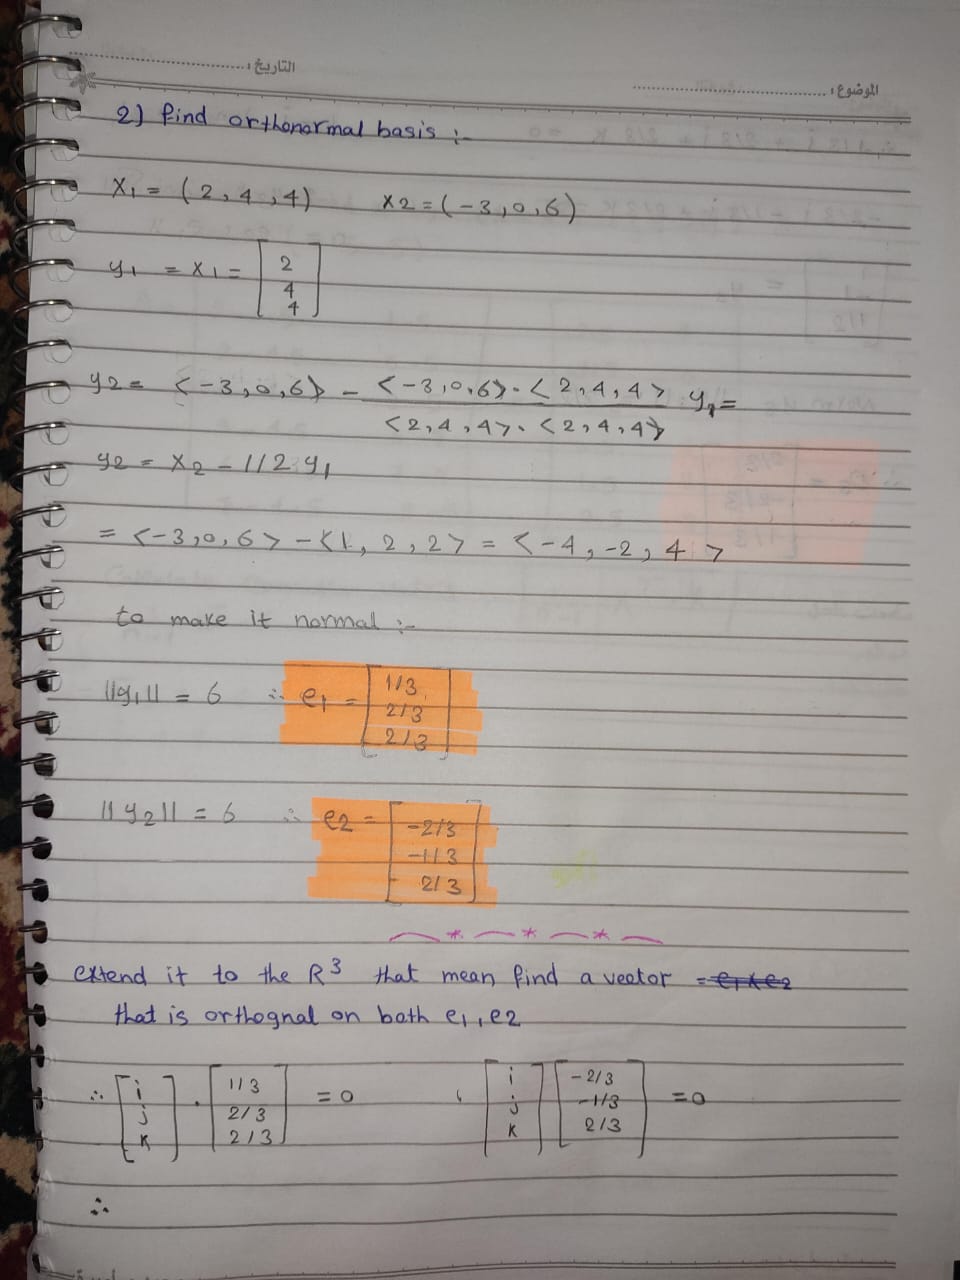 التاريخ :
الموضوع :
2) find orthonormal basis :-
X1 = (2, 4, 4) X2 = (-3, 0, 6)
y1 = X1 = [2 4 4]
y2 = <-3, 0, 6> - <-3, 0, 6> . <2, 4, 4> / <2, 4, 4> . <2, 4, 4> y1 =
y2 = X2 - 1/2 y1
= <-3, 0, 6> - <1, 2, 2> = <-4, -2, 4>
to make it normal :-
||y1|| = 6 ∴ e1 = [1/3 2/3 2/3]
||y2|| = 6 ∴ e2 = [-2/3 -1/3 2/3]
extend it to the R³ that mean find a vector = e1 x e2
that is orthognal on both e1, e2
∴ [i j k] . [1/3 2/3 2/3] = 0 , [i j k] [-2/3 -1/3 2/3] = 0
∴